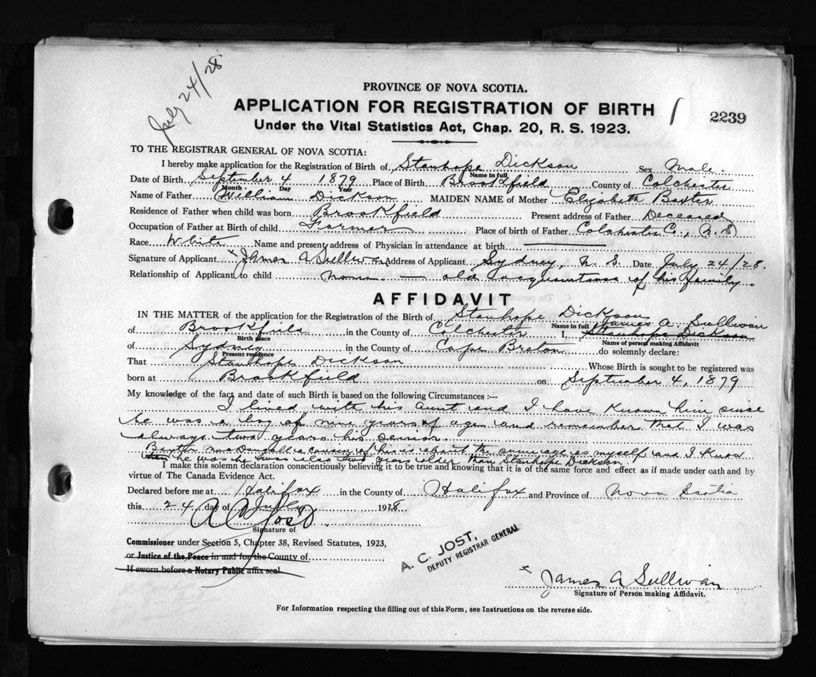 July 24/28
PROVINCE OF NOVA SCOTIA.
APPLICATION FOR REGISTRATION OF BIRTH
2239
Under the Vital Statistics Act, Chap. 20, R. S. 1923.
TO THE REGISTRAR GENERAL OF NOVA SCOTIA:
I hereby make application for the Registration of Birth of Stanhope Dickson Sex Male.
Name in full
Date of Birth September 4 1879 Place of Birth Brookfield County of Colchester
Month Day Year
Name of Father William Dickson MAIDEN NAME of Mother Elizabeth Baxter
Residence of Father when child was born Brookfield Present address of Father Deceased
Occupation of Father at Birth of child Farmer Place of birth of Father Colchester Co., N.S
Race White Name and present address of Physician in attendance at birth
Signature of Applicant x James A Sullivan Address of Applicant Sydney, N.S Date July 24/28.
Relationship of Applicant to child none — old acquaintance of his family.
AFFIDAVIT
IN THE MATTER of the application for the Registration of the Birth of Stanhope Dickson
Name in full James A. Sullivan
of Brookfield in the County of Colchester I, Stanhope Dickson
Birth place Name of person making Affidavit
of Sydney in the County of Cape Breton do solemnly declare:
Present residence
That Stanhope Dickson Whose Birth is sought to be registered was
born at Brookfield on September 4, 1879
My knowledge of the fact and date of such Birth is based on the following Circumstances :—
I lived with his aunt and I have known him since
he was a boy of nine years of age and remember that I was
always two years his senior.
Baxter McDougall a cousin of his is about the same age as myself and I know
he was also two years older than Stanhope Dickson.
I make this solemn declaration conscientiously believing it to be true and knowing that it is of the same force and effect as if made under oath and by
virtue of The Canada Evidence Act.
Declared before me at Halifax in the County of Halifax and Province of Nova Scotia
this 24 day of July 1928
A C Jost
Signature of
Commissioner under Section 5, Chapter 38, Revised Statutes, 1923,
or Justice of the Peace in and for the County of
If sworn before a Notary Public affix seal.
A. C. JOST,
DEPUTY REGISTRAR GENERAL
x James A Sullivan
Signature of Person making Affidavit.
For Information respecting the filling out of this Form, see Instructions on the reverse side.